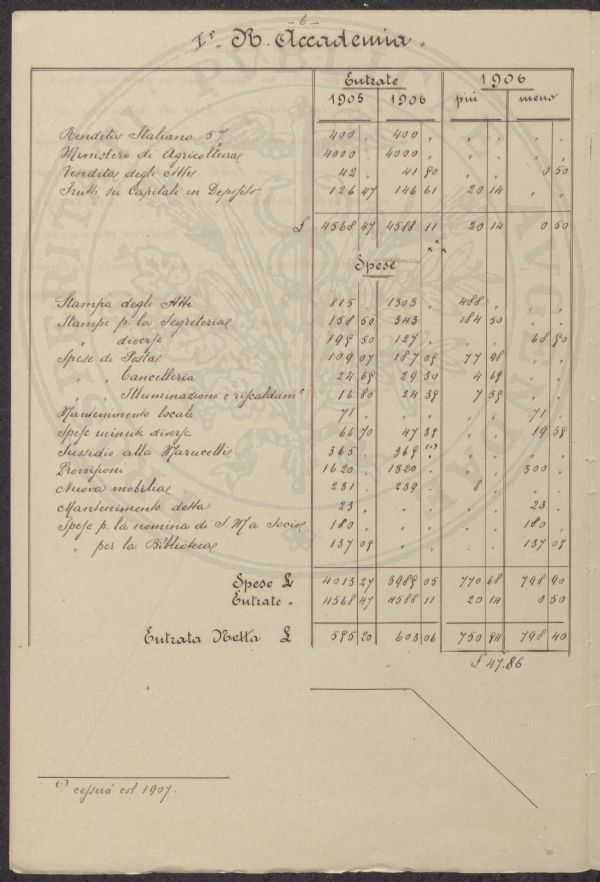 - 6 -
I°. R. Accademia.
Entrate 1906
1905 1906 più meno
Rendita Italiana 5% 400 , 400 , , , , ,
Ministero di Agricoltura 4000 , 4000 , , , , ,
Vendita degli Atti 42 , 41 50 , , 0 50
Frutti su Capitali in Deposito 126 47 146 61 20 14 , ,
£ 4568 47 4588 11 20 14 0 50
Spese
Stampa degli Atti 815 , 1303 , 488 , , ,
Stampe p. la Segreteria 158 50 343 , 184 50 , ,
" diverse 195 50 127 , , , 68 50
Spese di Posta 109 07 187 05 77 98 , ,
" " Cancelleria 24 69 29 30 4 69 , ,
" " Illuminazione e riscaldam° 16 80 24 39 7 59 , ,
Mantenimento locale 71 , , , , , 71 ,
Spese minute diverse 66 70 47 39 , , 19 39
Sussidio alla Marucelli 365 , 369 (*) , , , ,
Provvigioni 1620 , 1320 , , , 300 ,
Nuova mobilia 231 , 239 , 8 , , ,
Mantenimento detta 23 , , , , , 23 ,
Spese p. la nomina di S. M a Socio 180 , , , , , 180 ,
" per la Biblioteca 137 09 , , , , 137 09
Spese £ 4013 27 3985 05 770 68 798 90
Entrate " 4568 47 4588 11 20 14 0 50
Entrata Netta £ 595 20 603 06 750 94 798 40
£ 47.86
(*) cesserà col 1907.